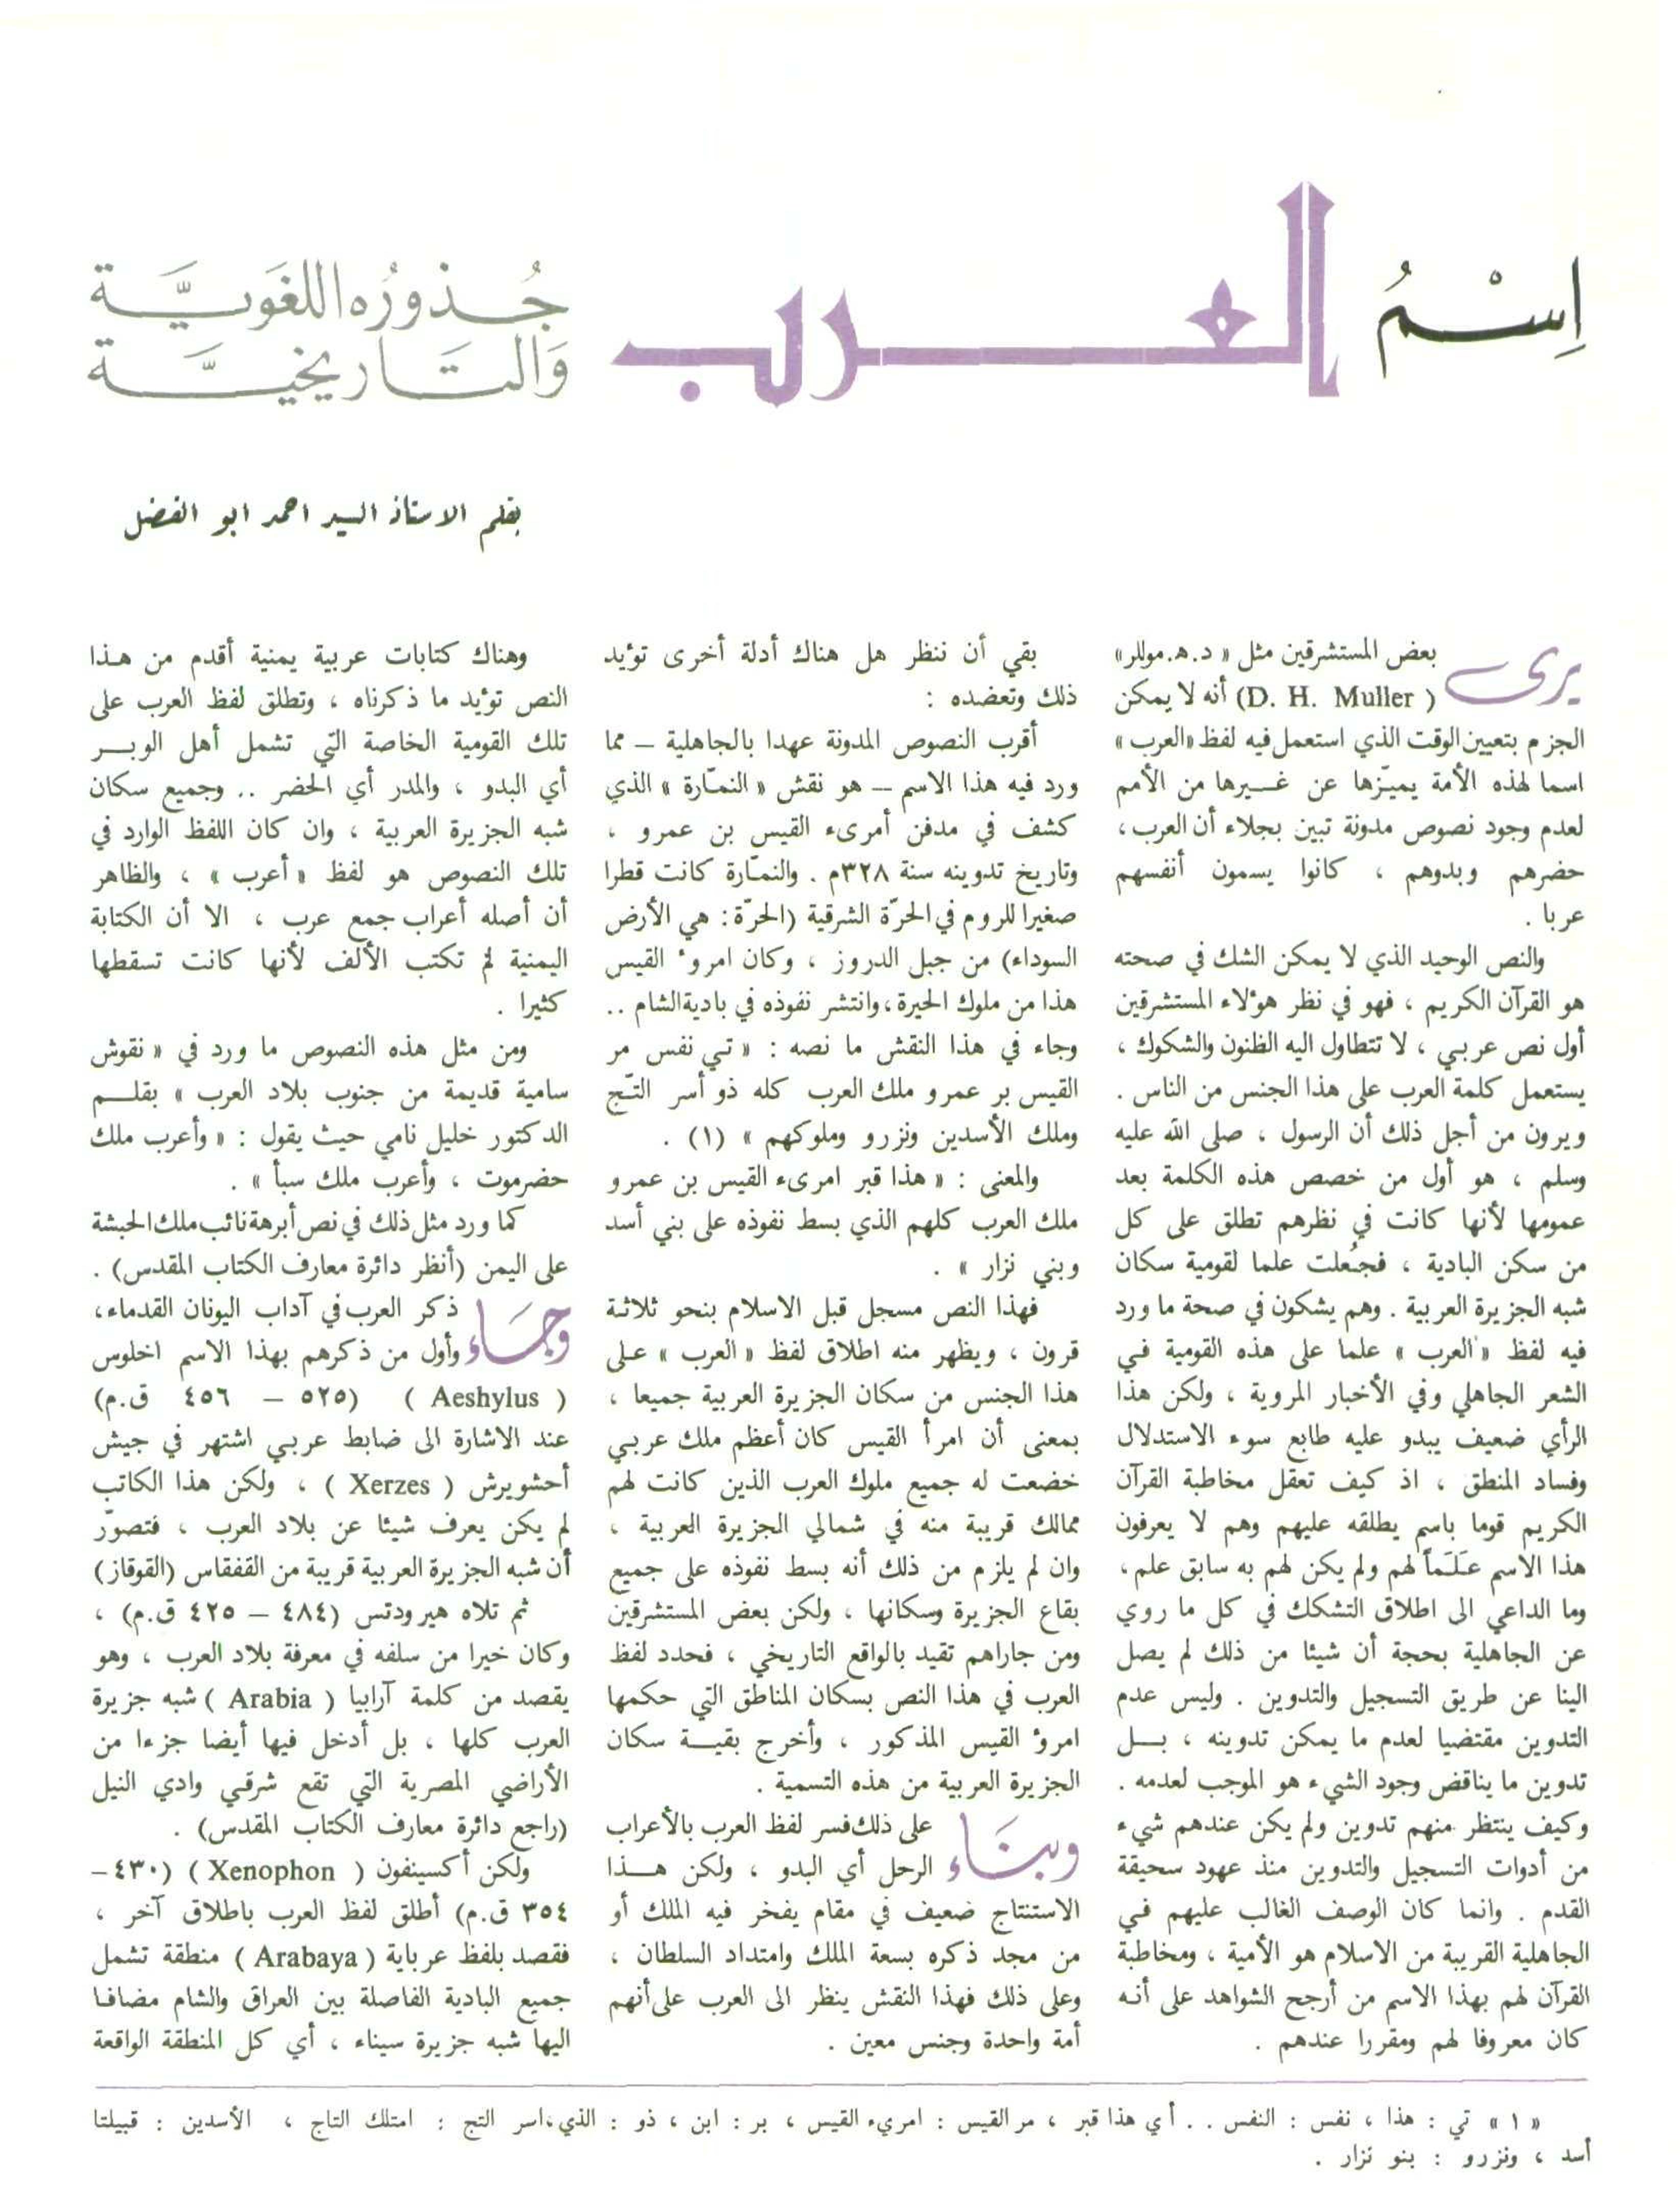 اِسْمُ العرب
جُذورُه اللغَويَّة
وَالتَاريخيَّة
بقلم الاستاذ السيد احمد ابو الفضل
يرى بعض المستشرقين مثل « د.ه.موللر»
( D. H. Muller) أنه لا يمكن
الجزم بتعيين الوقت الذي استعمل فيه لفظ «العرب»
اسما لهذه الأمة يميّزها عن غــيرها من الأمم
لعدم وجود نصوص مدونة تبين بجلاء أن العرب،
حضرهم وبدوهم ، كانوا يسمون أنفسهم
عربا .
والنص الوحيد الذي لا يمكن الشك في صحته
هو القرآن الكريم ، فهو في نظر هؤلاء المستشرقين
أول نص عربي ، لا تتطاول اليه الظنون والشكوك ،
يستعمل كلمة العرب على هذا الجنس من الناس .
ويرون من أجل ذلك أن الرسول ، صلى الله عليه
وسلم ، هو أول من خصص هذه الكلمة بعد
عمومها لأنها كانت في نظرهم تطلق على كل
من سكن البادية ، فجُعلت علما لقومية سكان
شبه الجزيرة العربية . وهم يشكون في صحة ما ورد
فيه لفظ « العرب » علما على هذه القومية في
الشعر الجاهلي وفي الأخبار المروية ، ولكن هذا
الرأي ضعيف يبدو عليه طابع سوء الاستدلال
وفساد المنطق ، اذ كيف تعقل مخاطبة القرآن
الكريم قوما باسم يطلقه عليهم وهم لا يعرفون
هذا الاسم عَلَماً لهم ولم يكن لهم به سابق علم،
وما الداعي الى اطلاق التشكك في كل ما روي
عن الجاهلية بحجة أن شيئا من ذلك لم يصل
الينا عن طريق التسجيل والتدوين . وليس عدم
التدوين مقتضيا لعدم ما يمكن تدوينه ، بــل
تدوين ما يناقض وجود الشيء هو الموجب لعدمه .
وكيف ينتظر منهم تدوين ولم يكن عندهم شيء
من أدوات التسجيل والتدوين منذ عهود سحيقة
القدم . وانما كان الوصف الغالب عليهم في
الجاهلية القريبة من الاسلام هو الأمية ، ومخاطبة
القرآن لهم بهذا الاسم من أرجح الشواهد على أنه
كان معروفا لهم ومقررا عندهم .
بقي أن ننظر هل هناك أدلة أخرى تؤيد
ذلك وتعضده :
أقرب النصوص المدونة عهدا بالجاهلية – مما
ورد فيه هذا الاسم – هو نقش « النمّارة » الذي
كشف في مدفن أمرىء القيس بن عمرو ،
وتاريخ تدوينه سنة ٣٢٨م . والنمّارة كانت قطرا
صغيرا للروم في الحرّة الشرقية (الحرّة: هي الأرض
السوداء) من جبل الدروز ، وكان امروء القيس
هذا من ملوك الحيرة،وانتشر نفوذه في بادية الشام ..
وجاء في هذا النقش ما نصه : « تي نفس مر
القيس بر عمرو ملك العرب كله ذو أسر التّج
وملك الأسدين ونزرو وملوكهم » (١) .
والمعنى : « هذا قبر امرىء القيس بن عمرو
ملك العرب كلهم الذي بسط نفوذه على بني أسد
وبني نزار » .
فهذا النص مسجل قبل الاسلام بنحو ثلاثة
قرون ، ويظهر منه اطلاق لفظ « العرب » على
هذا الجنس من سكان الجزيرة العربية جميعا ،
بمعنى أن امرأ القيس كان أعظم ملك عربي
خضعت له جميع ملوك العرب الذين كانت لهم
ممالك قريبة منه في شمالي الجزيرة العربية ،
وان لم يلزم من ذلك أنه بسط نفوذه على جميع
بقاع الجزيرة وسكانها ، ولكن بعض المستشرقين
ومن جاراهم تقيد بالواقع التاريخي ، فحدد لفظ
العرب في هذا النص بسكان المناطق التي حكمها
امرؤ القيس المذكور ، وأخرج بقيــة سكان
الجزيرة العربية من هذه التسمية .
وبنَاء على ذلك فسر لفظ العرب بالأعراب
الرحل أي البدو ، ولكن هــذا
الاستنتاج ضعيف في مقام يفخر فيه الملك أو
من مجد ذكره بسعة الملك وامتداد السلطان ،
وعلى ذلك فهذا النقش ينظر الى العرب على أنهم
أمة واحدة وجنس معين .
وهناك كتابات عربية يمنية أقدم من هــذا
النص تؤيد ما ذكرناه ، وتطلق لفظ العرب على
تلك القومية الخاصة التي تشمل أهل الوبــر
أي البدو ، والمدر أي الحضر .. وجميع سكان
شبه الجزيرة العربية ، وان كان اللفظ الوارد في
تلك النصوص هو لفظ « أعرب » ، والظاهر
أن أصله أعراب جمع عرب ، الا أن الكتابة
اليمنية لم تكتب الألف لأنها كانت تسقطها
كثيرا .
ومن مثل هذه النصوص ما ورد في « نقوش
سامية قديمة من جنوب بلاد العرب » بقلــم
الدكتور خليل نامي حيث يقول : « وأعرب ملك
حضرموت ، وأعرب ملك سبأ » .
كما ورد مثل ذلك في نص أبرهة نائب ملك الحبشة
على اليمن (أنظر دائرة معارف الكتاب المقدس) .
وجَاء ذكر العرب في آداب اليونان القدماء،
وأول من ذكرهم بهذا الاسم اخلوس
( Aeshylus ) (٥٢٥ – ٤٥٦ ق.م)
عند الاشارة الى ضابط عربي اشتهر في جيش
أحشويرش ( Xerzes ) ، ولكن هذا الكاتب
لم يكن يعرف شيئا عن بلاد العرب ، فتصوّر
أن شبه الجزيرة العربية قريبة من القفقاس (القوقاز)
ثم تلاه هيرودتس (٤٨٤ – ٤٢٥ ق.م) ،
وكان خيرا من سلفه في معرفة بلاد العرب ، وهو
يقصد من كلمة آرابيا ( Arabia ) شبه جزيرة
العرب كلها ، بل أدخل فيها أيضا جزءا من
الأراضي المصرية التي تقع شرقي وادي النيل
(راجع دائرة معارف الكتاب المقدس) .
ولكن أكسينفون ( Xenophon ) (٤٣٠–
٣٥٤ ق.م) أطلق لفظ العرب باطلاق آخر ،
فقصد بلفظ عرباية ( Arabaya ) منطقة تشمل
جميع البادية الفاصلة بين العراق والشام مضافا
اليها شبه جزيرة سيناء ، أي كل المنطقة الواقعة
« ١ » تي : هذا ، نفس : النفس . . أي هذا قبر ، مر القيس : امريء القيس ، بر : ابن ، ذو : الذي،اسر التج : امتلك التاج ، الأسدين : قبيلتا
أسد ، ونزرو : بنو نزار .